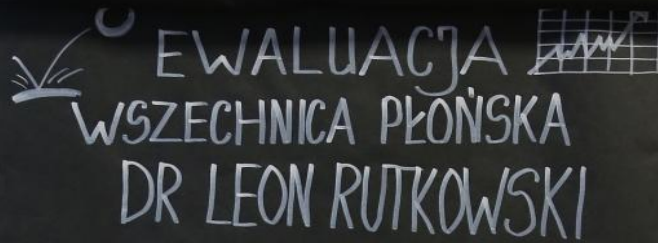 EWALUACJA
WSZECHNICA PŁOŃSKA
DR LEON RUTKOWSKI